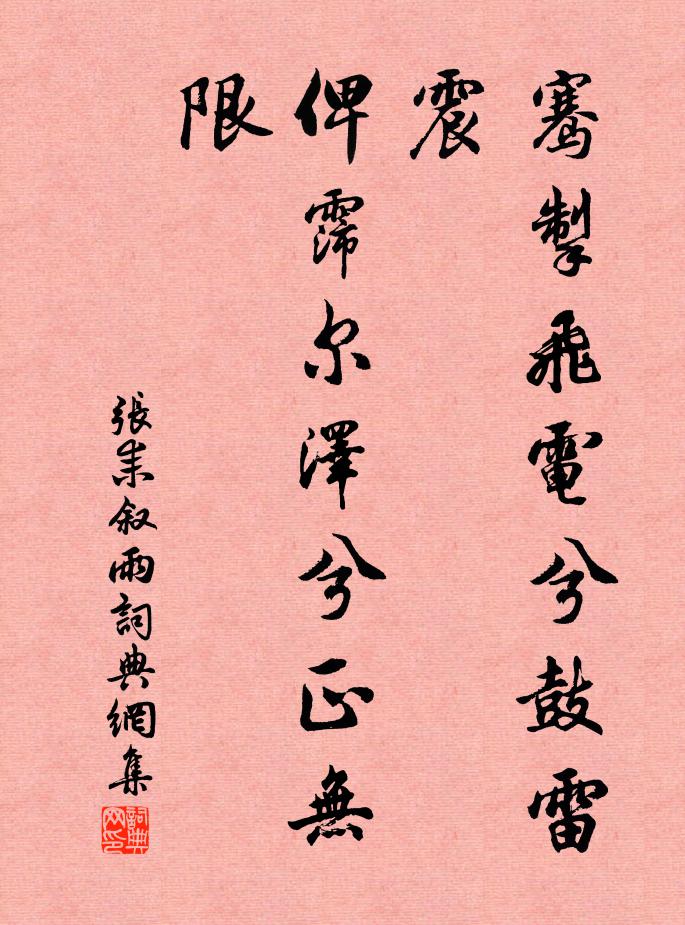 騫掣飛電兮鼓雷
震
俾霈尔澤兮正無
限
張耒叙雨詞典網集
詞典
网印